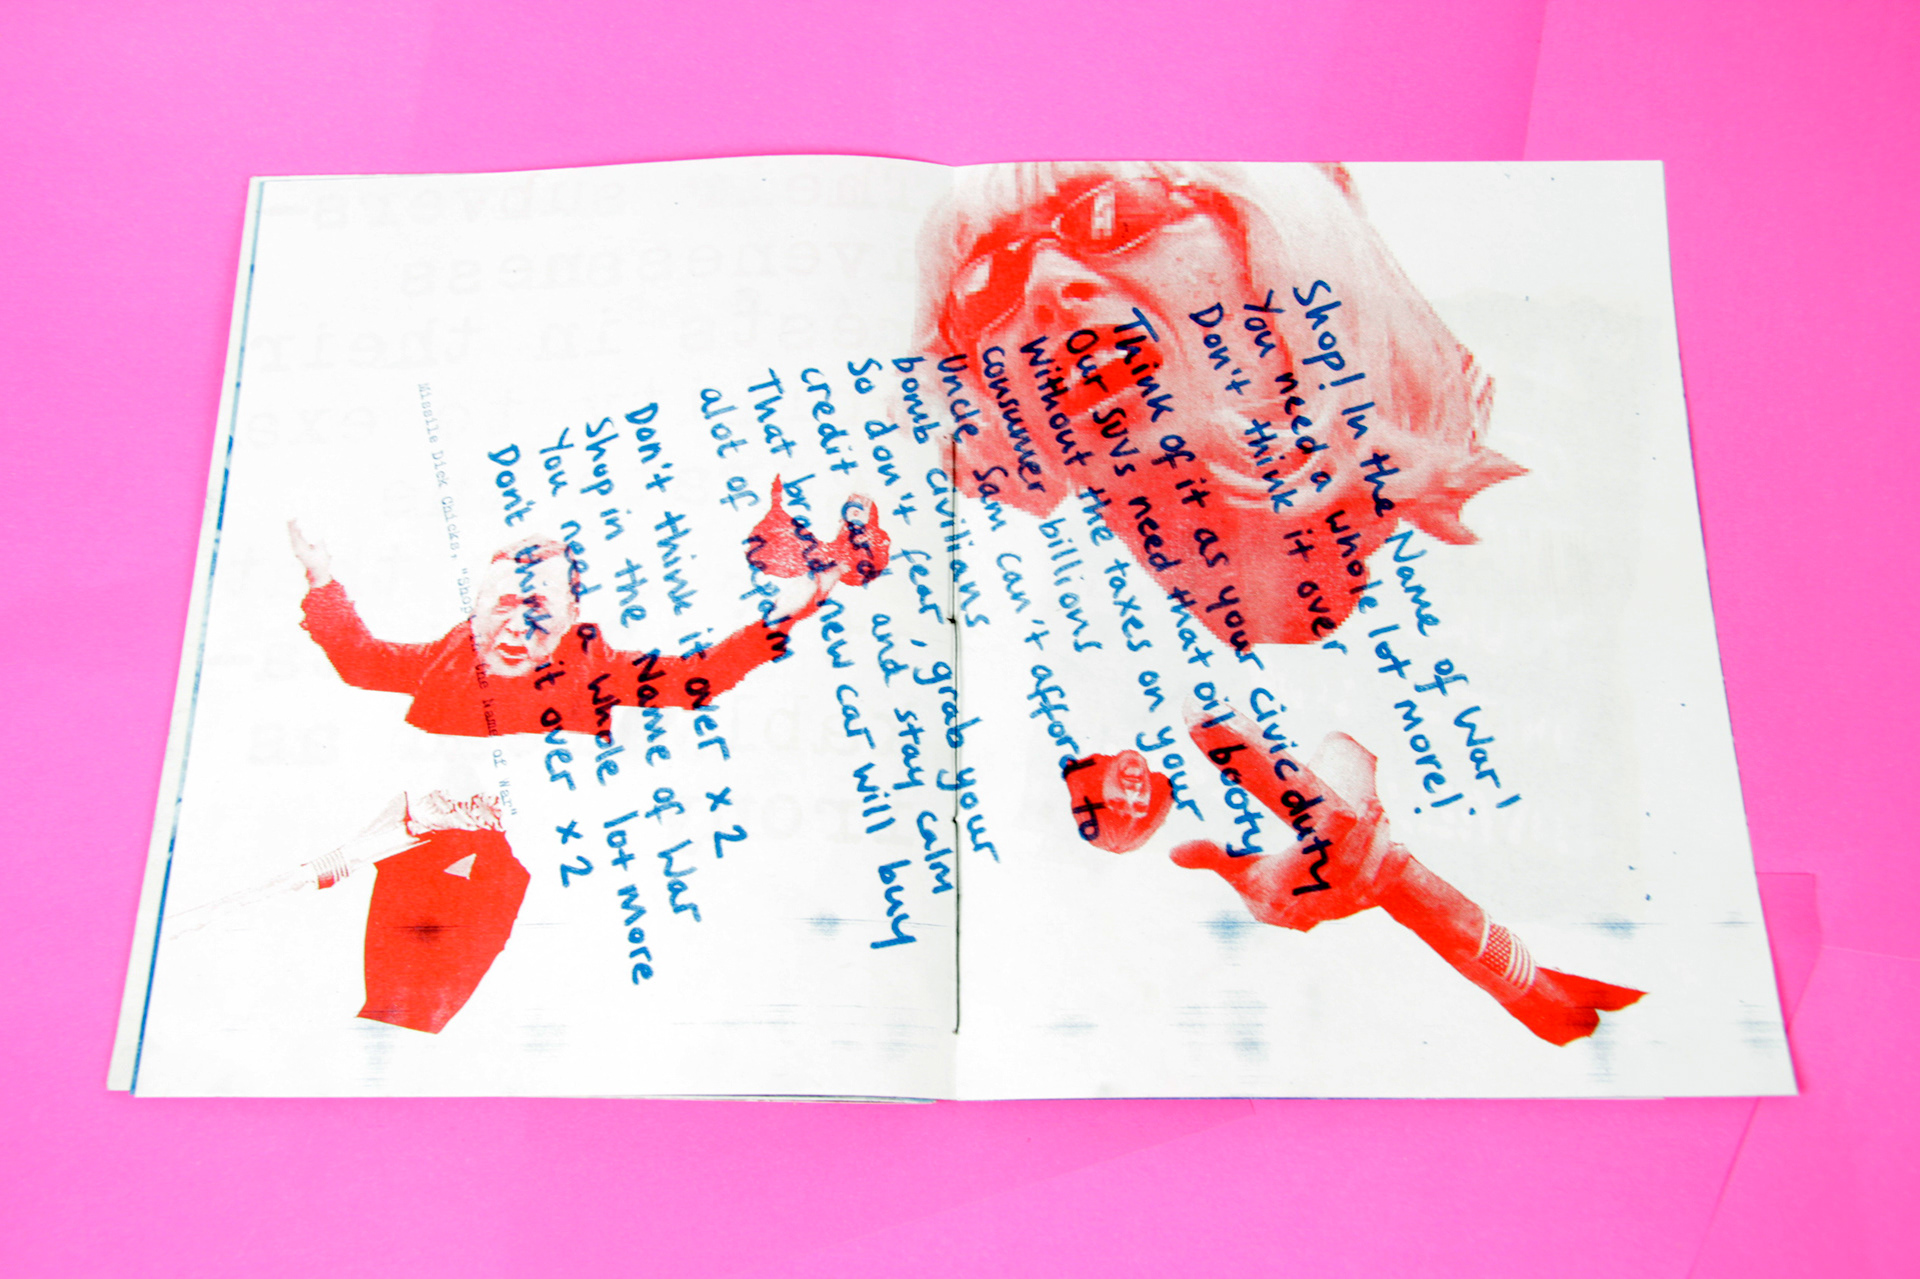 Shop! In the Name of War!
You need a whole lot more!
Don't think it over
Think of it as your civic duty
Our SUVs need that oil booty
Without the taxes on your
consumer billions
Uncle Sam can't afford to
bomb civilians
So don't fear, grab your
credit card and stay calm
That brand new car will buy
alot of napalm
Don't think it over x 2
Shop in the Name of War
You need a whole lot more
Don't think it over x 2
Missile Dick Chicks, "Shop in the Name of War"
Their subvers-
iveness
in their
as